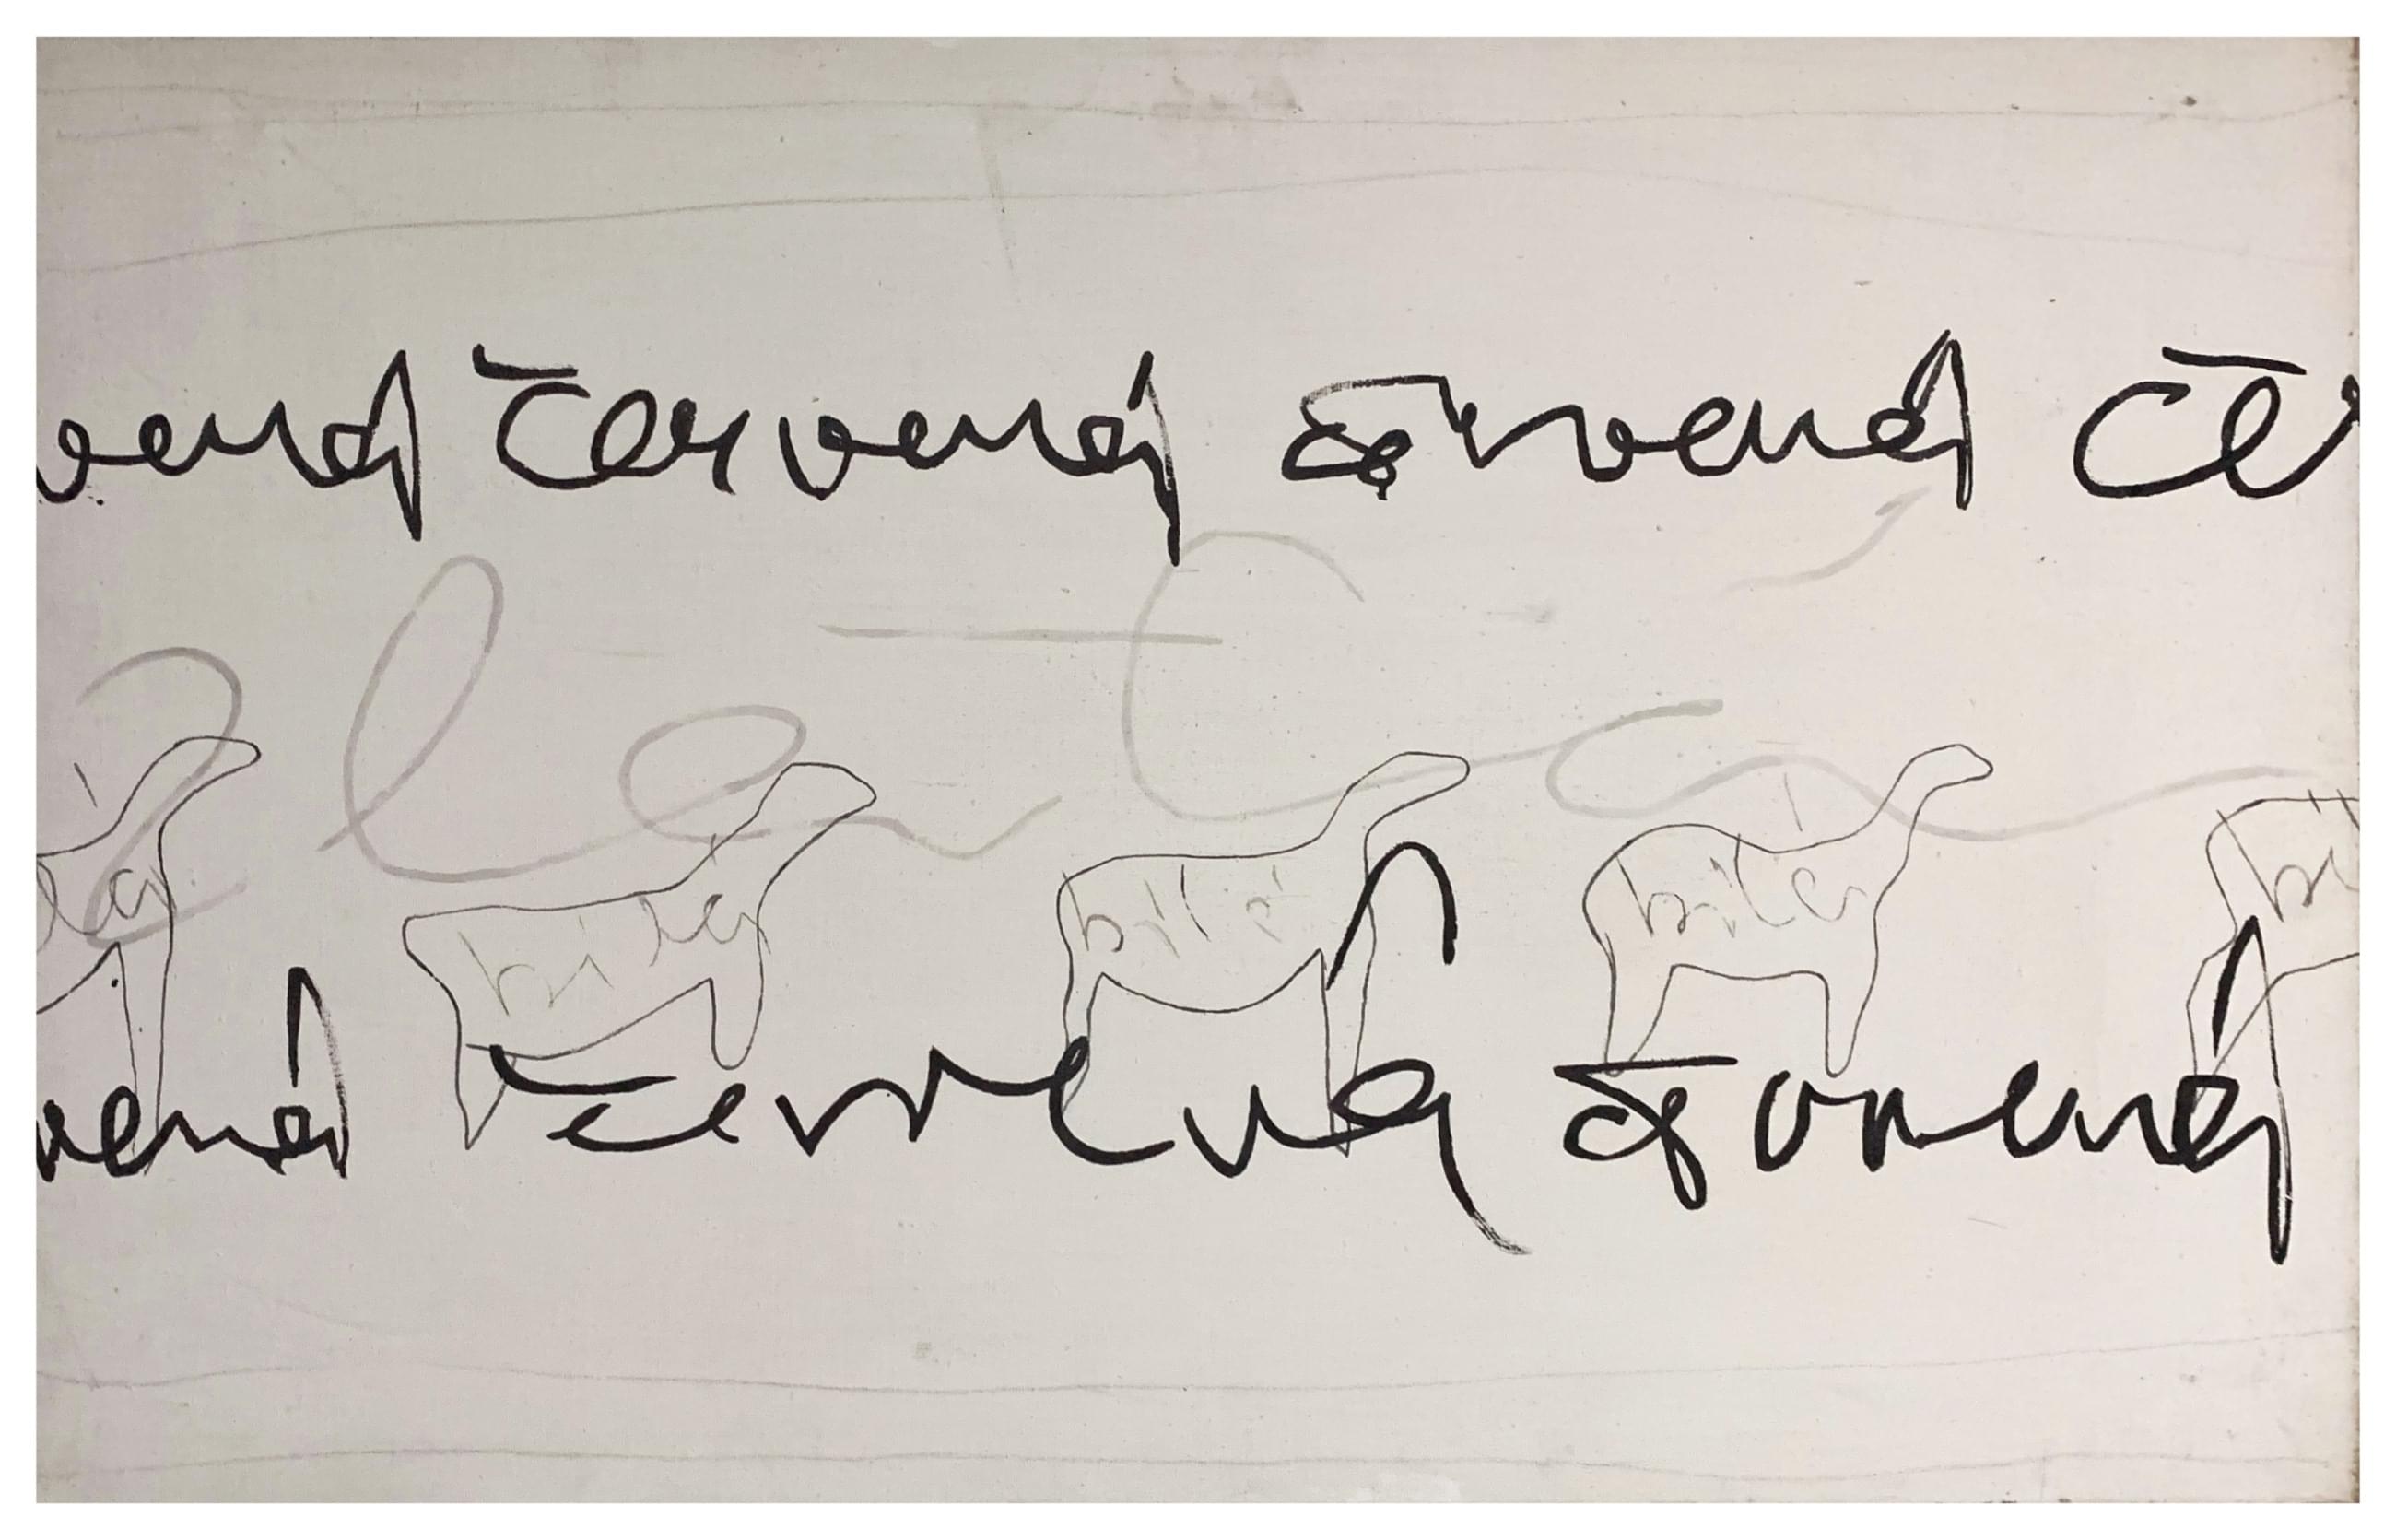 vená červená červená čer
bílá bílá bílá
vená červená červená